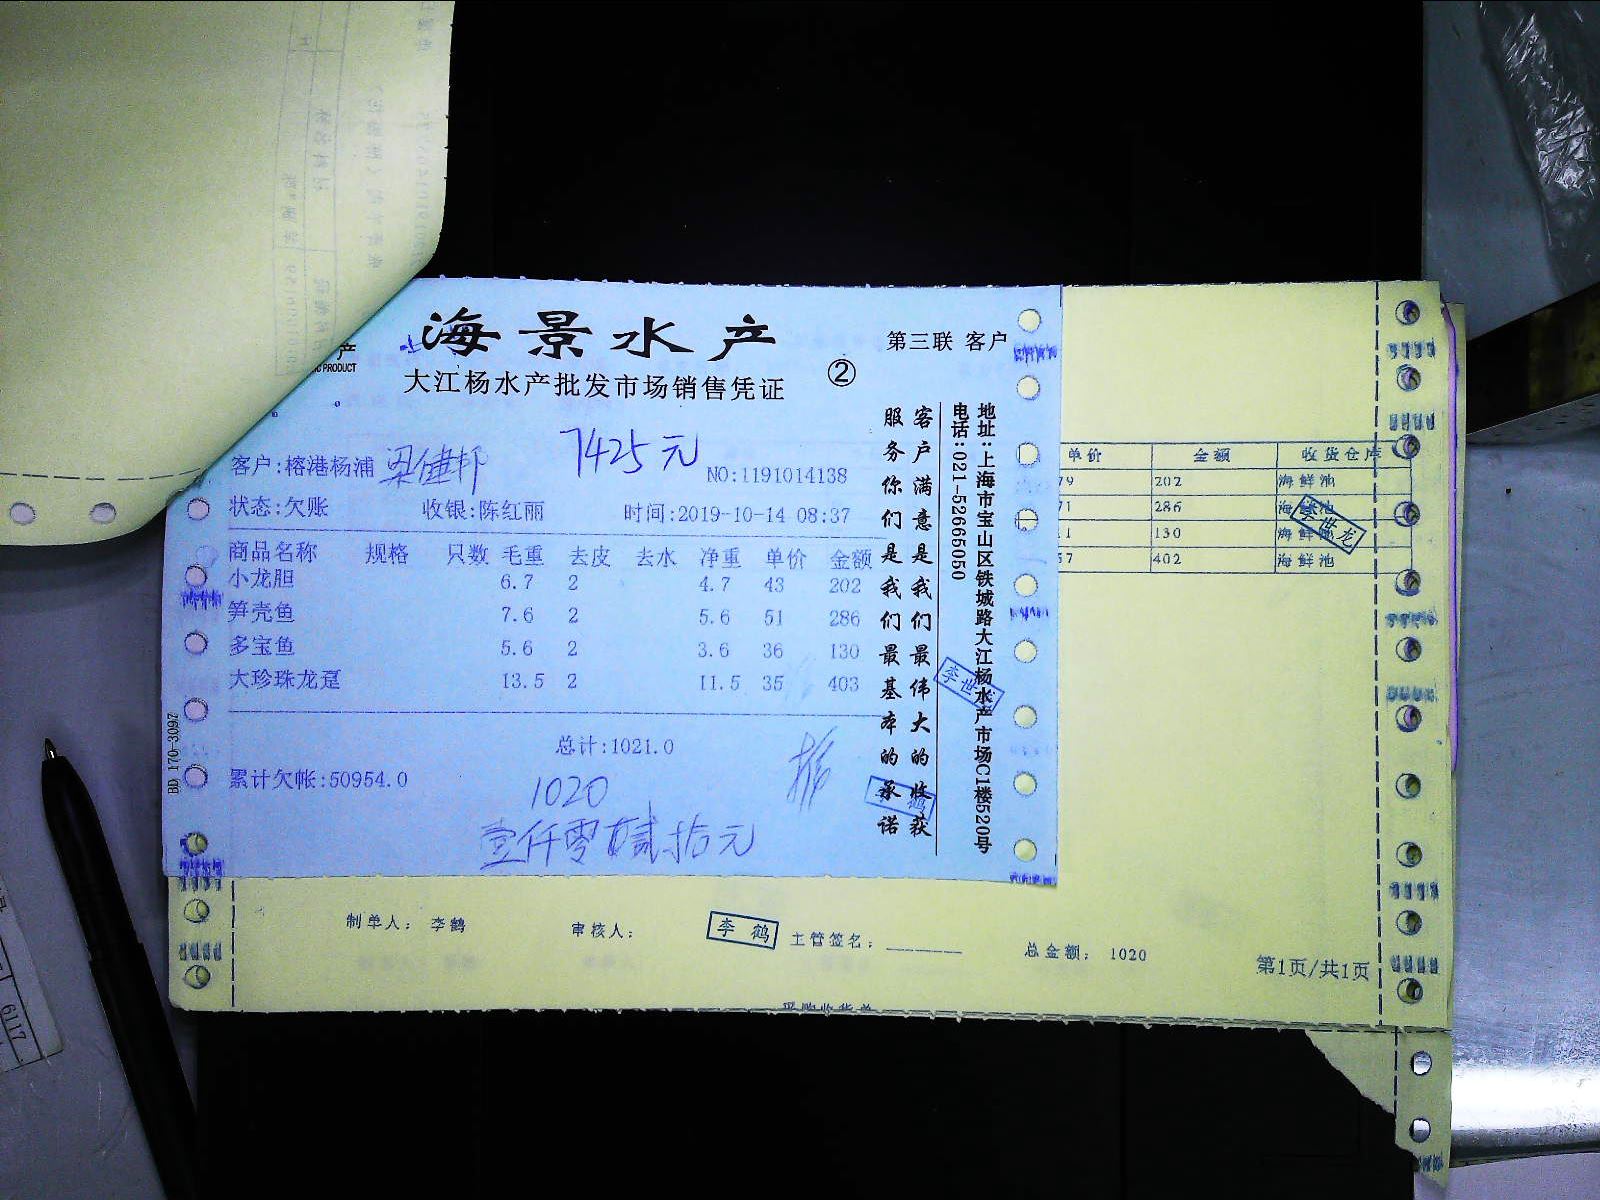 海景水产
产
PRODUCT
大江杨水产批发市场销售凭证
②
第三联 客户
7425元
客户:榕港杨浦 梁健邦
NO:1191014138
状态:欠账 收银:陈红丽 时间:2019-10-14 08:37
商品名称 规格 只数 毛重 去皮 去水 净重 单价 金额
小龙胆 6.7 2 4.7 43 202
笋壳鱼 7.6 2 5.6 51 286
多宝鱼 5.6 2 3.6 36 130
大珍珠龙趸 13.5 2 11.5 35 403
总计:1021.0
累计欠帐:50954.0
1020
壹仟零贰拾元
客户满意是我们最伟大的收获
服务你们是我们最基本的承诺
地址:上海市宝山区铁城路大江杨水产市场C1楼520号
电话:021-52665050
李世龙
李鹤
BD 170-3097
单价 金额 收货仓库
79 202 海鲜池
71 286 海鲜池
1 130 海鲜池
57 402 海鲜池
李世龙
制单人: 李鹤 审核人: 李鹤 主管签名: 总金额: 1020
第1页/共1页
采购收货单
6117